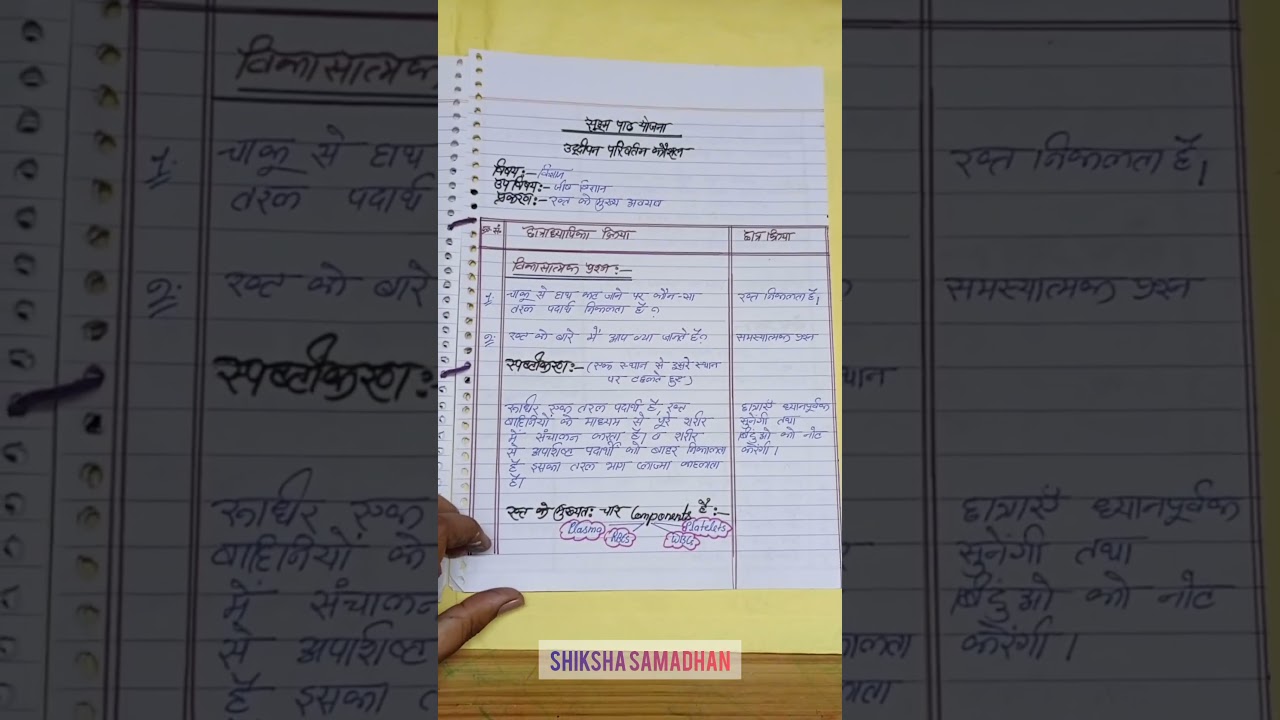 सूक्ष्म पाठ योजना
उद्दीपन परिवर्तन कौशल
विषय:- विज्ञान
उप विषय:- जीव विज्ञान
प्रकरण:- रक्त के मुख्य अवयव
क्र.सं. छात्राध्यापिका क्रिया छात्र क्रिया
विकासात्मक प्रश्न:-
1. चाकू से हाथ कट जाने पर कौन-सा रक्त निकलता है।
तरल पदार्थ निकलता है?
2. रक्त के बारे में आप क्या जानते है? समस्यात्मक प्रश्न
स्पष्टीकरण:- (एक स्थान से दूसरे स्थान
पर टहलते हुए)
रूधिर एक तरल पदार्थ है, रक्त छात्राएँ ध्यानपूर्वक
वाहिनियों के माध्यम से पूरे शरीर सुनेंगी तथा
में संचालन करता है। व शरीर बिंदुओ को नोट
से अपशिष्ट पदार्थो को बाहर निकालता करेंगी।
है इसका तरल भाग प्लाज्मा कहलाता
है।
रक्त के मुख्यत: चार Components है:-
Plasma RBCs WBCs Platelets
SHIKSHA SAMADHAN